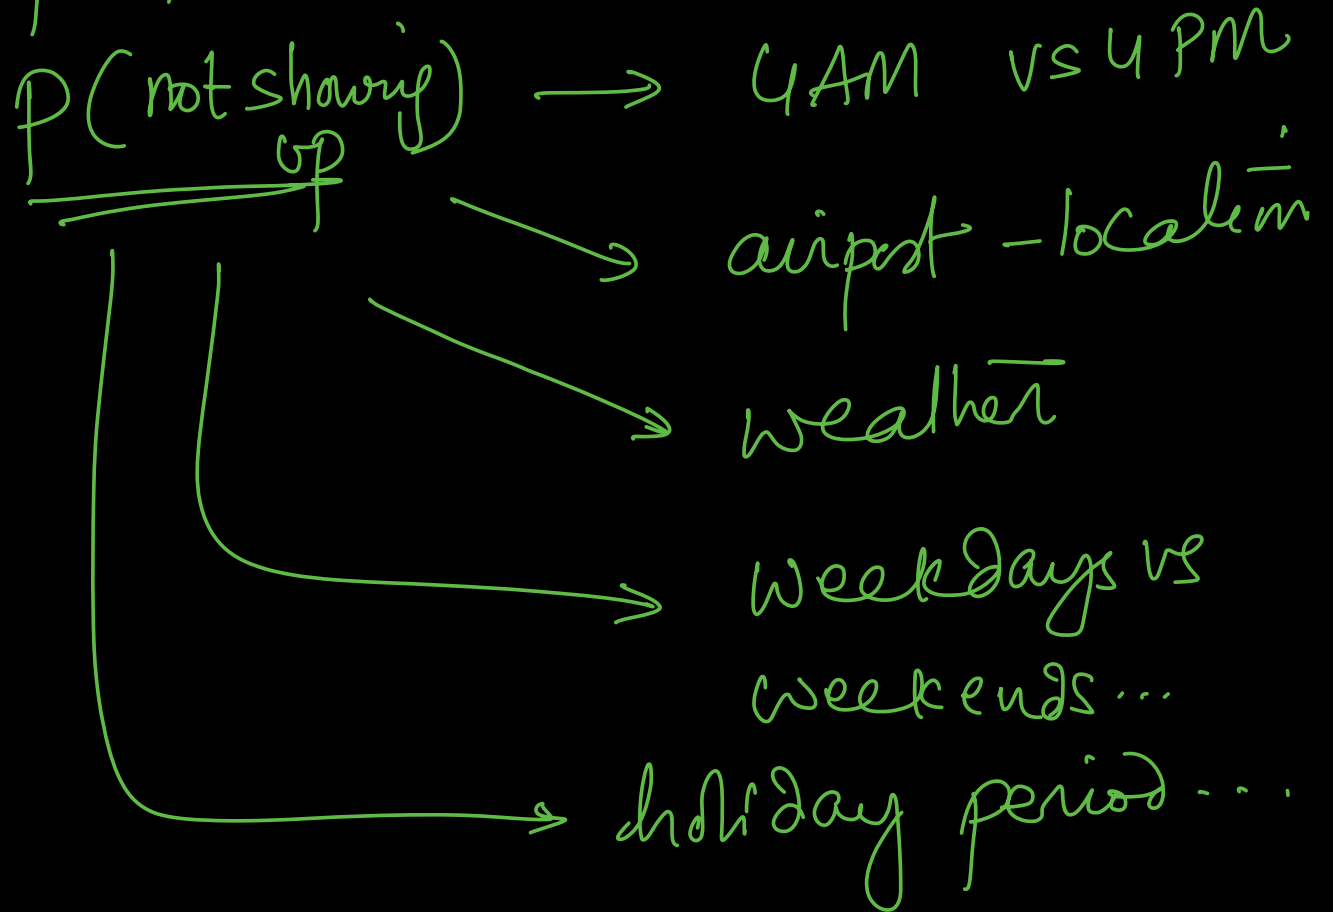 P(not showing up) → 4AM vs 4 PM
airport - location
weather
weekdays vs
weekends...
holiday period....